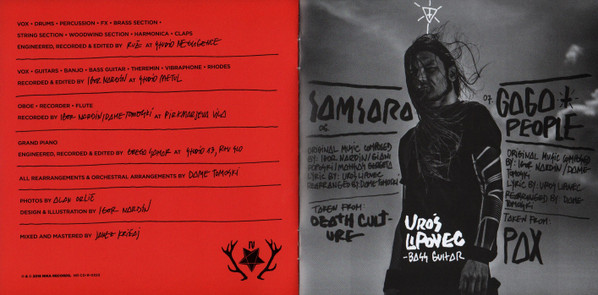 VOX • DRUMS • PERCUSSION • FX • BRASS SECTION •
STRING SECTION • WOODWIND SECTION • HARMONICA • CLAPS
ENGINEERED, RECORDED & EDITED BY AT
VOX • GUITARS • BANJO • BASS GUITAR • THEREMIN • VIBRAPHONE • RHODES
RECORDED & EDITED BY IGOR NARDIN AT STUDIO METUL
OBOE • RECORDER • FLUTE
RECORDED BY IGOR NARDIN/DOME TOMOSKI AT PIRKMAJEVA
GRAND PIANO
ENGINEERED, RECORDED & EDITED BY AT STUDIO 13, RTV SLO
ALL REARRANGEMENTS & ORCHESTRAL ARRANGEMENTS BY DOME TOMOSKI
PHOTOS BY ALAN ORLIČ
DESIGN & ILLUSTRATION BY IGOR NARDIN
MIXED AND MASTERED BY JANEZ KRIŽAJ
IV
SAMSARA
06.
ORIGINAL MUSIC COMPOSED
BY: IGOR NARDIN/
LYRIC BY: UROŠ LIPOVEC
REARRANGED BY: DOME TOMOSKI
TAKEN FROM:
DEATH CULT-
URE
UROŠ
LIPOVEC
-BASS GUITAR
07.
GOGO *
PEOPLE
ORIGINAL MUSIC COMPOSED
BY: IGOR NARDIN/DOME
TOMOSKI
LYRIC BY: UROŠ LIPOVEC
REARRANGED BY: DOME
TOMOSKI
TAKEN FROM:
PAX